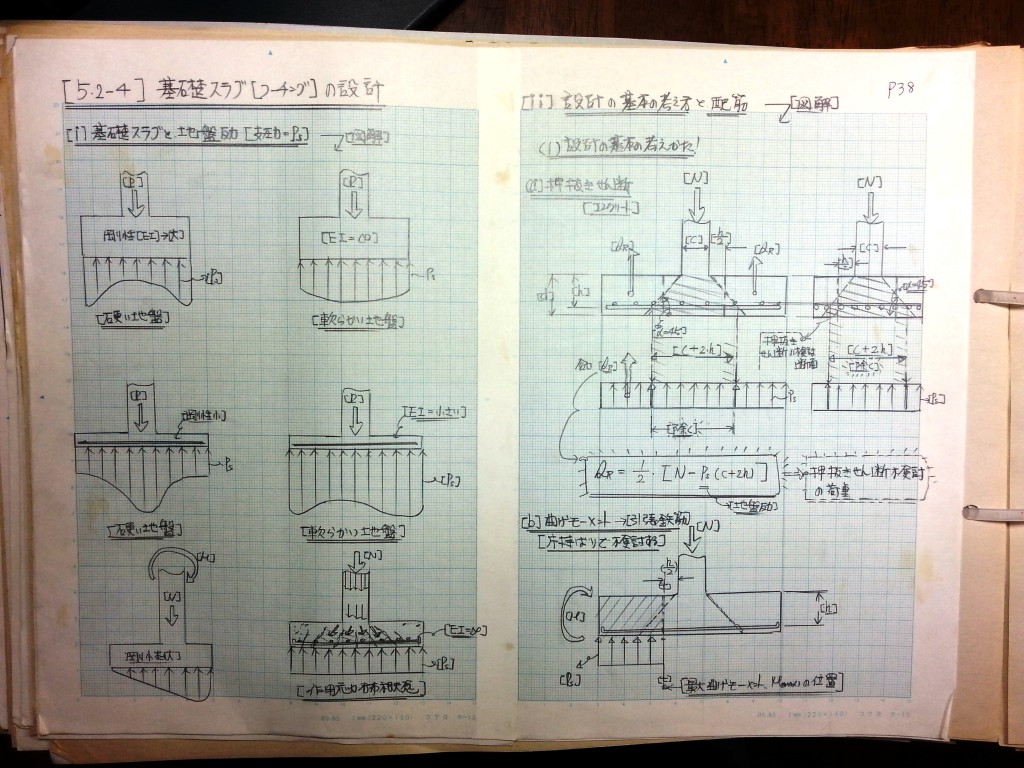 [5.2-4] 基礎スラブ[フーチング]の設計
[i] 基礎スラブと地盤反力[支圧力=Ps] → [図解]
[P]
剛性[EI]→大
[Ps]
[硬い地盤]
[P]
[EI=∞]
Ps
[軟らかい地盤]
[P]
[剛性小]
Ps
[硬い地盤]
[P]
[EI=小さい]
[Ps]
[軟らかい地盤]
[M]
[N]
[N]
[EI=∞]
[Ps]
[作用応力分布状態]
P38
[ii] 設計の基本の考え方と配筋 → [図解]
(1) 設計の基本の考えかた!
(a) 押抜きせん断
[コンクリート]
[N]
[C]
[h/2]
[QR]
[QR]
[d]
[h]
[α=45°]
[C+2·h]
[QR]
Ps
[除く]
[N]
[C]
[h/2]
[α=45°]
押抜き
せん断の検討
断面
[C+2h]
[除く]
[Ps]
QR = 1/2 · [N − Ps(C+2h)]
[地盤反力]
押抜きせん断検討
の荷重
[b] 曲げモーメント → [引張鉄筋]
[片持ばりで検討する]
[N]
[h/2]
[M]
[h]
[Ps]
[最大曲げモーメント, Mmaxの位置]